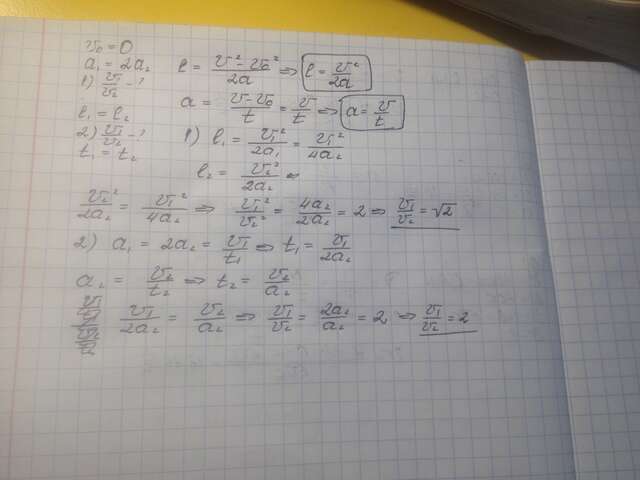 v₀ = 0
a₁ = 2a₂
1) v₁/v₂ - ?
l₁ = l₂
2) v₁/v₂ - ?
t₁ = t₂
l = (v² - v₀²)/2a ⇒ l = v²/2a
a = (v - v₀)/t = v/t ⇒ a = v/t
1) l₁ = v₁²/2a₁ = v₁²/4a₂
l₂ = v₂²/2a₂ ⇒
v₂²/2a₂ = v₁²/4a₂ ⇒ v₁²/v₂² = 4a₂/2a₂ = 2 ⇒ v₁/v₂ = √2
2) a₁ = 2a₂ = v₁/t₁ ⇒ t₁ = v₁/2a₂
a₂ = v₂/t₂ ⇒ t₂ = v₂/a₂
v₁/2a₂ = v₂/a₂ ⇒ v₁/v₂ = 2a₂/a₂ = 2 ⇒ v₁/v₂ = 2